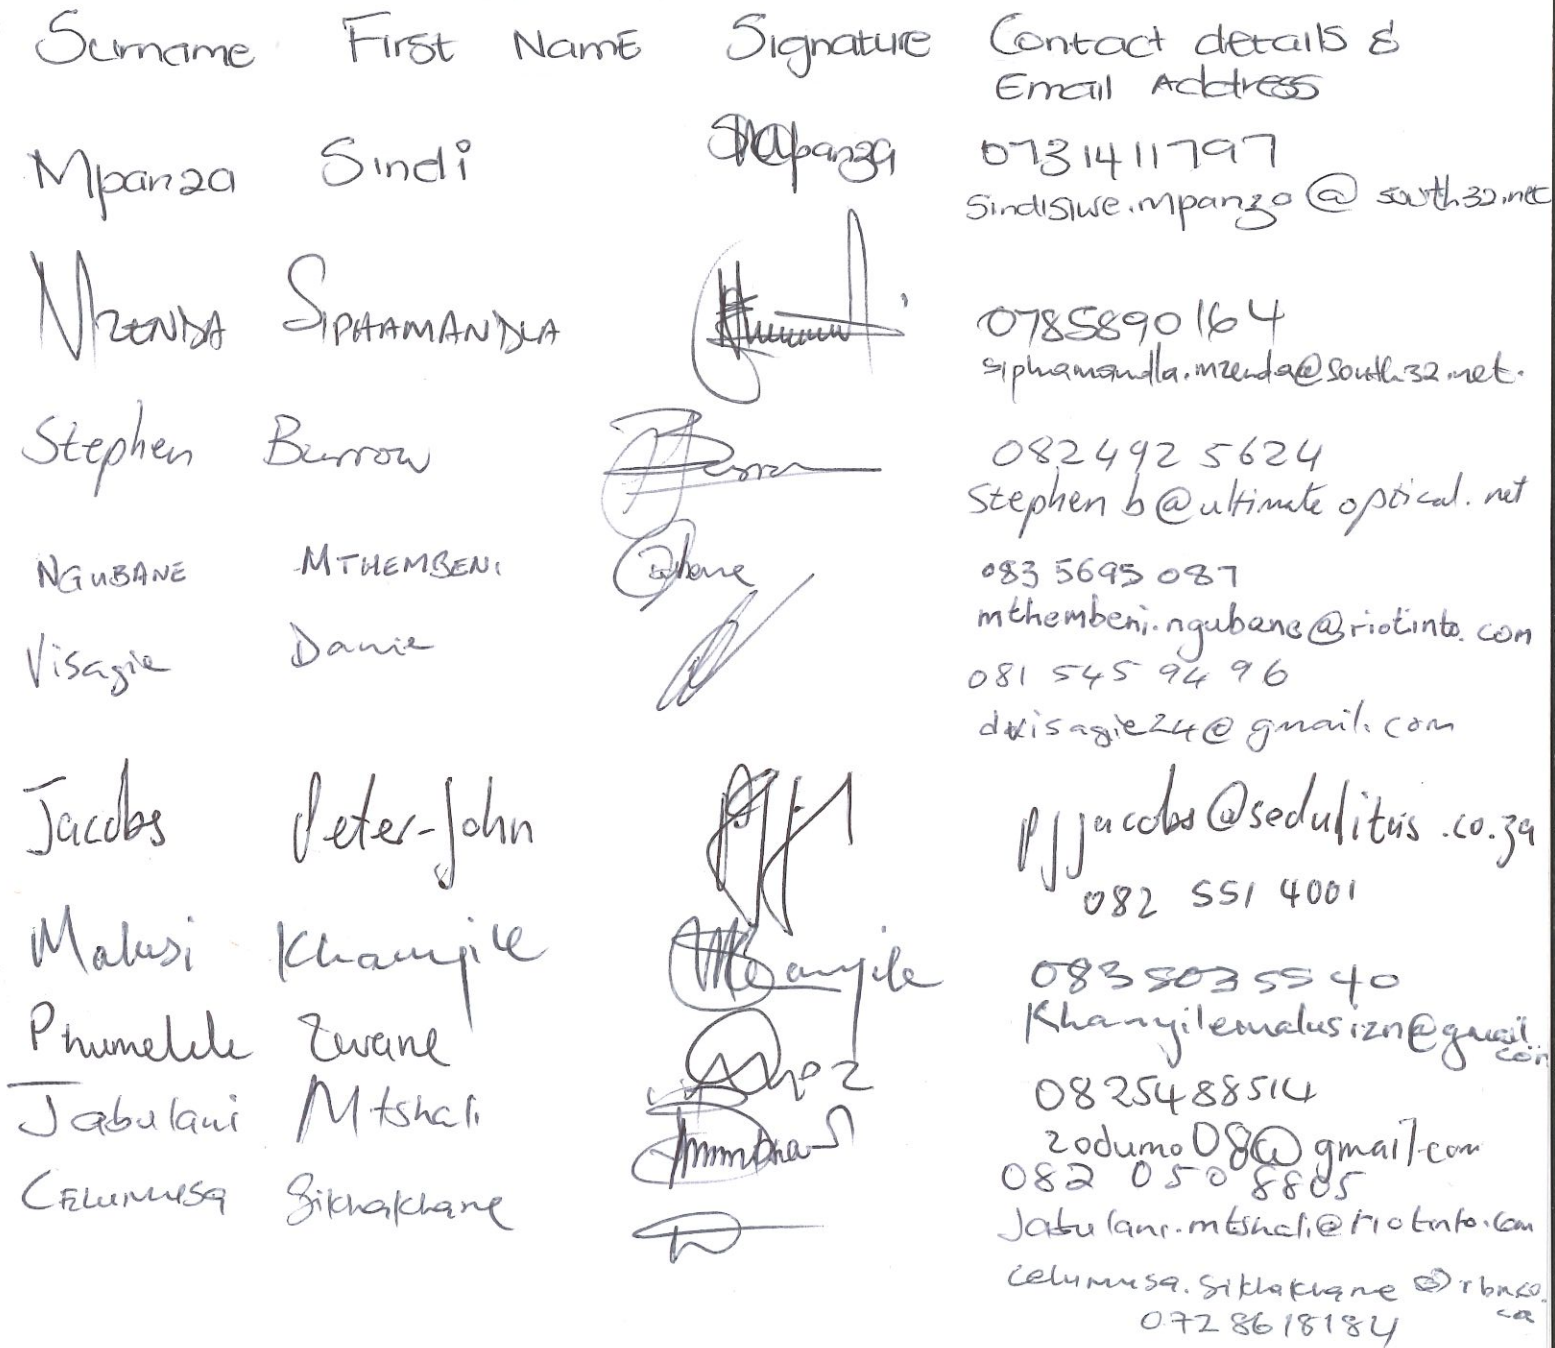 Surname First Name Signature Contact details &
Email Address
Mpanza Sindi Mpanza 0731411797
sindisiwe.mpanza@south32.net
MZENDA SIPHAMANDLA 0785890164
siphamandla.mzenda@south32.net.
Stephen Burrow 082 492 5624
Stephen b@ultimate optical.net
NGUBANE MTHEMBENI 083 5695 087
mthembeni.ngubane@riotinto.com
Visagie Danie 081 545 94 96
dvisagie24@gmail.com
Jacobs Peter-John pjjacobs@sedulitas.co.za
082 551 4001
Malusi Khanyile Khanyile 083 503 55 40
Khanyilemalusizn@gmail
com
Phumelele Zwane 0825488514
zodumo08@gmail.com
Jabulani Mtshali 082 050 8805
Jabulani.mtshali@riotinto.com
CELUMUSA Sikhakhane celumusa.sikhakhane@rbm.co.
za
0728618184